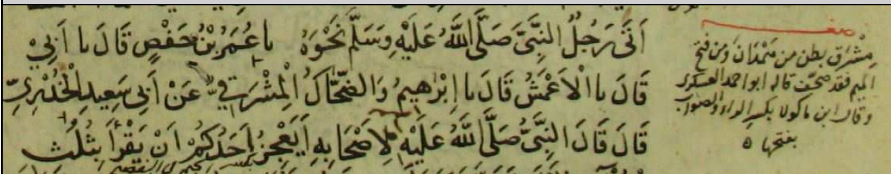 أَتَى رَجُلٌ النَّبِيَّ صَلَّى اللَّهُ عَلَيْهِ وَسَلَّمَ نَحْوَهُ نا عُمَرُ بْنُ حَفْصٍ قَالَ نا أَبِي
قَالَ نا الْأَعْمَشُ قَالَ نا إِبْرَاهِيمُ وَالضَّحَّاكُ الْمِشْرَقِيُّ عَنْ أَبِي سَعِيدٍ الْخُدْرِيِّ
قَالَ قَالَ النَّبِيُّ صَلَّى اللَّهُ عَلَيْهِ لِأَصْحَابِهِ أَيَعْجِزُ أَحَدُكُمْ أَنْ يَقْرَأَ بِثُلُثِ
مِشْرَق بطن من همدان ومن فتح
الميم فقد صحف قاله ابو احمد العسكري
وقال ابن ماكولا بكسر الراء والصواب
بفتحها